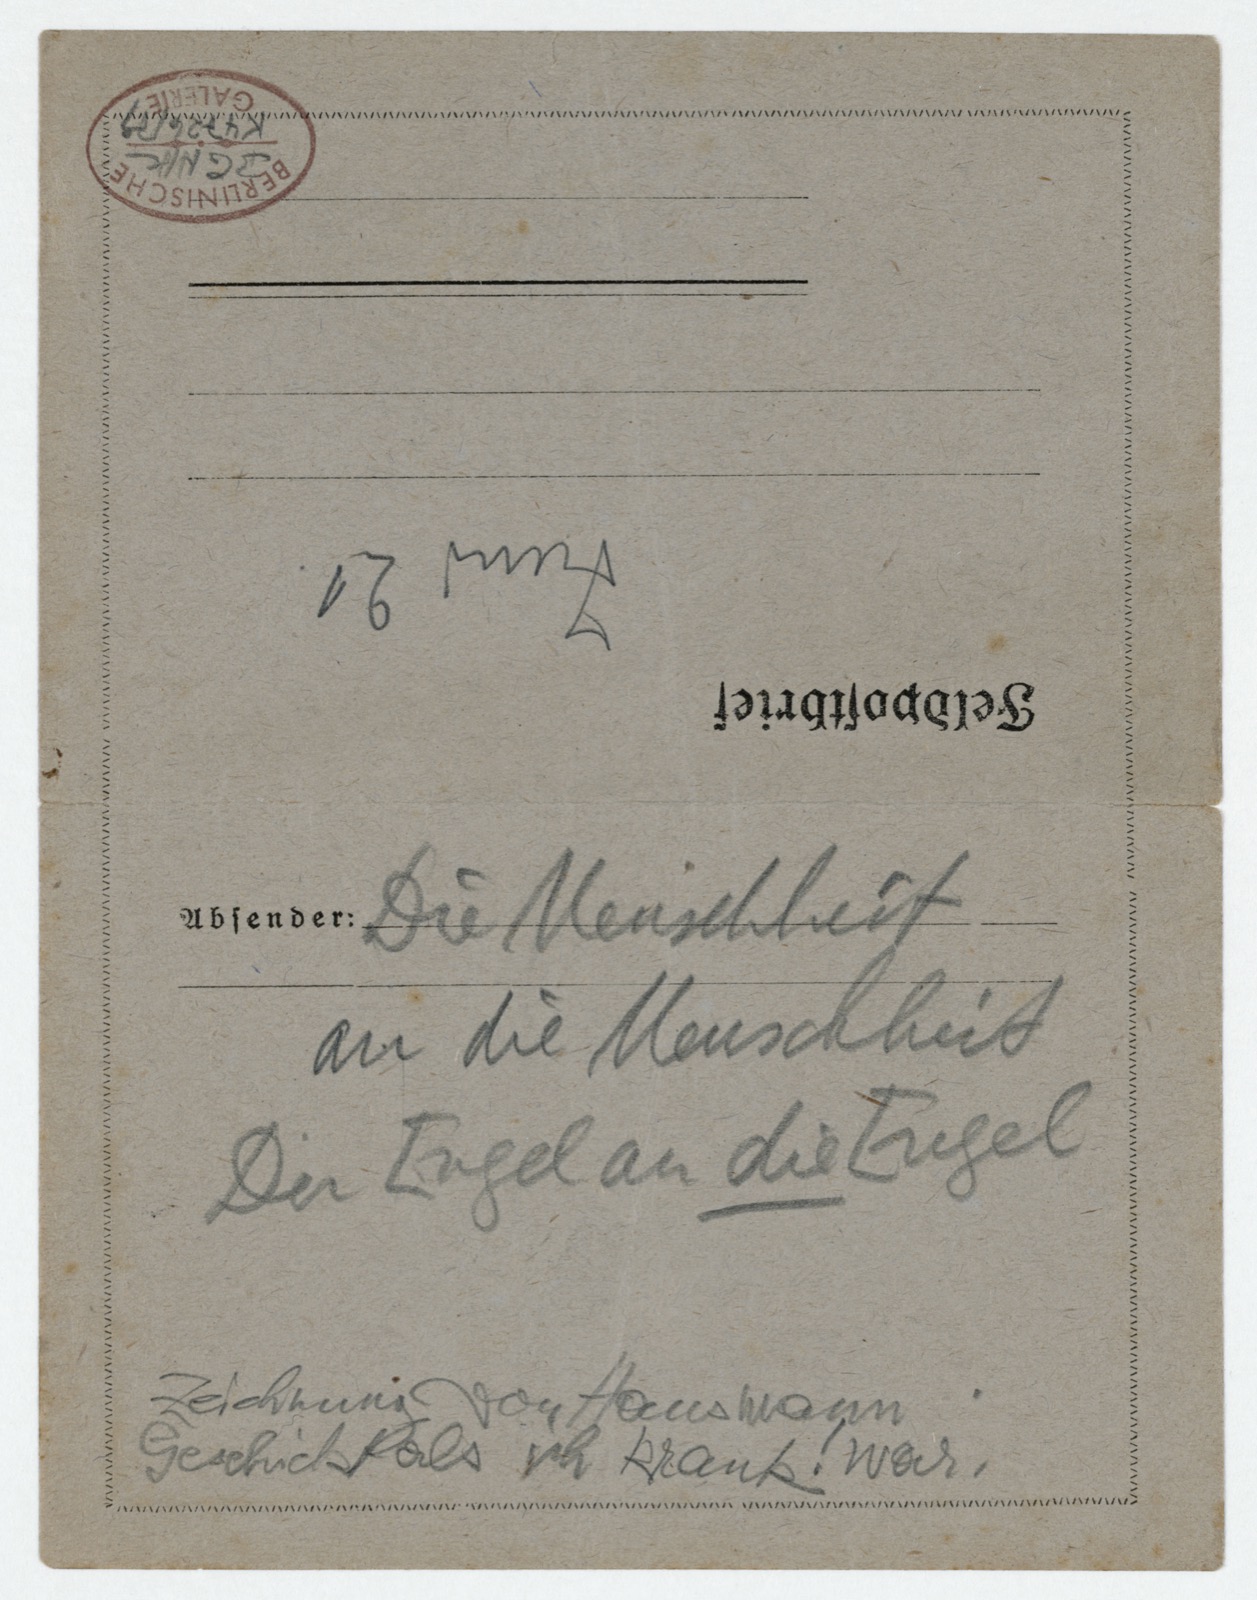 BERLINISCHE
GALERIE
BG NHC
K 4726/79
21
Feldpostbrief
Absender: Die Menschheit
an die Menschheit
Der Engel an die Engel
Zeichnung von Hausmann
Geschickt als ich krank war.